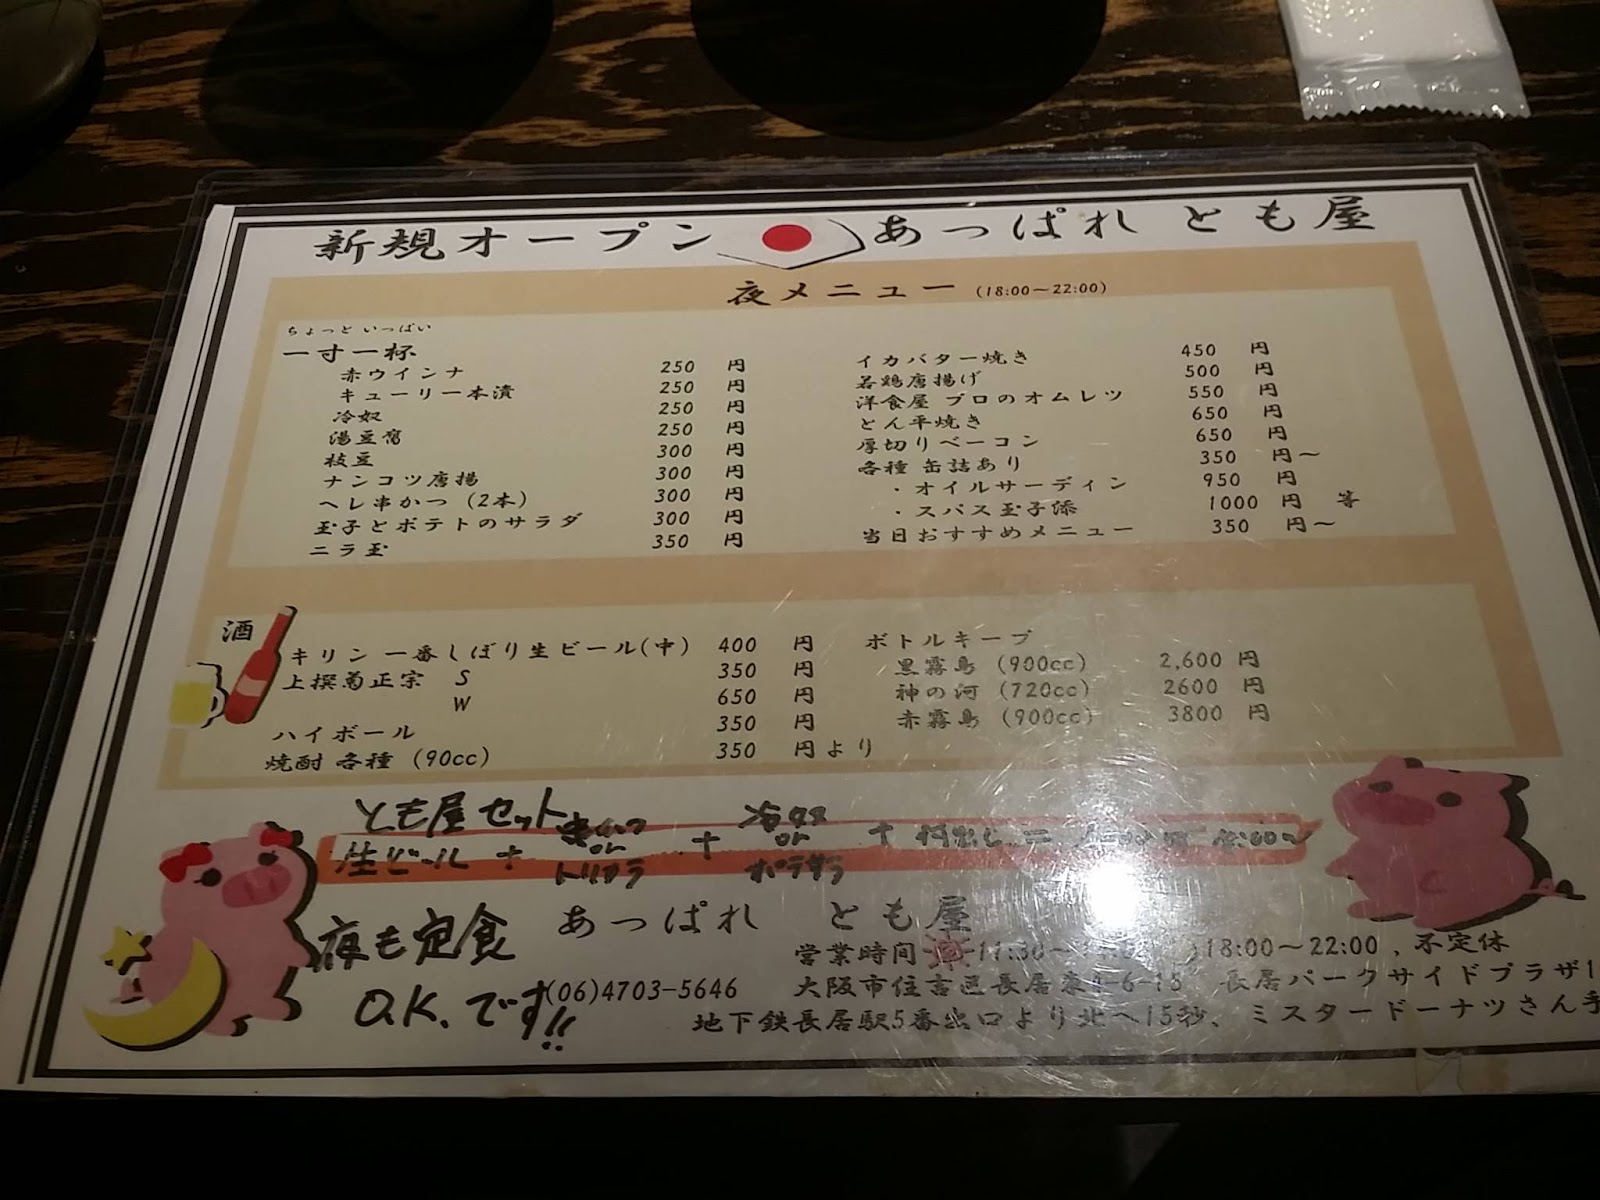 新規オープン あっぱれ とも屋
夜メニュー (18:00～22:00)
ちょっと いっぱい
一寸一杯
赤ウインナ 250 円
キューリ一本漬 250 円
冷奴 250 円
湯豆腐 250 円
枝豆 300 円
ナンコツ唐揚 300 円
ヘレ串かつ (2本) 300 円
玉子とポテトのサラダ 300 円
ニラ玉 350 円
イカバター焼き 450 円
若鶏唐揚げ 500 円
洋食屋 プロのオムレツ 550 円
とん平焼き 650 円
厚切りベーコン 650 円
各種 缶詰あり 350 円～
・オイルサーディン 950 円
・スパス玉子添 1000 円 等
当日おすすめメニュー 350 円～
酒
キリン 一番しぼり生ビール(中) 400 円
上撰菊正宗 S 350 円
W 650 円
ハイボール 350 円
焼酎 各種 (90cc) 350 円より
ボトルキープ
黒霧島 (900cc) 2,600 円
神の河 (720cc) 2600 円
赤霧島 (900cc) 3800 円
とも屋セット
生ビール + 串かつ or トリカラ + or ポテサラ +
夜も定食
O.K.です!!
あっぱれ とも屋
営業時間 11:30～ 18:00～22:00 , 不定休
(06)4703-5646 大阪市住吉区長居東4-6-15 長居パークサイドプラザ1
地下鉄長居駅5番出口より北へ15秒、ミスタードーナツさん手